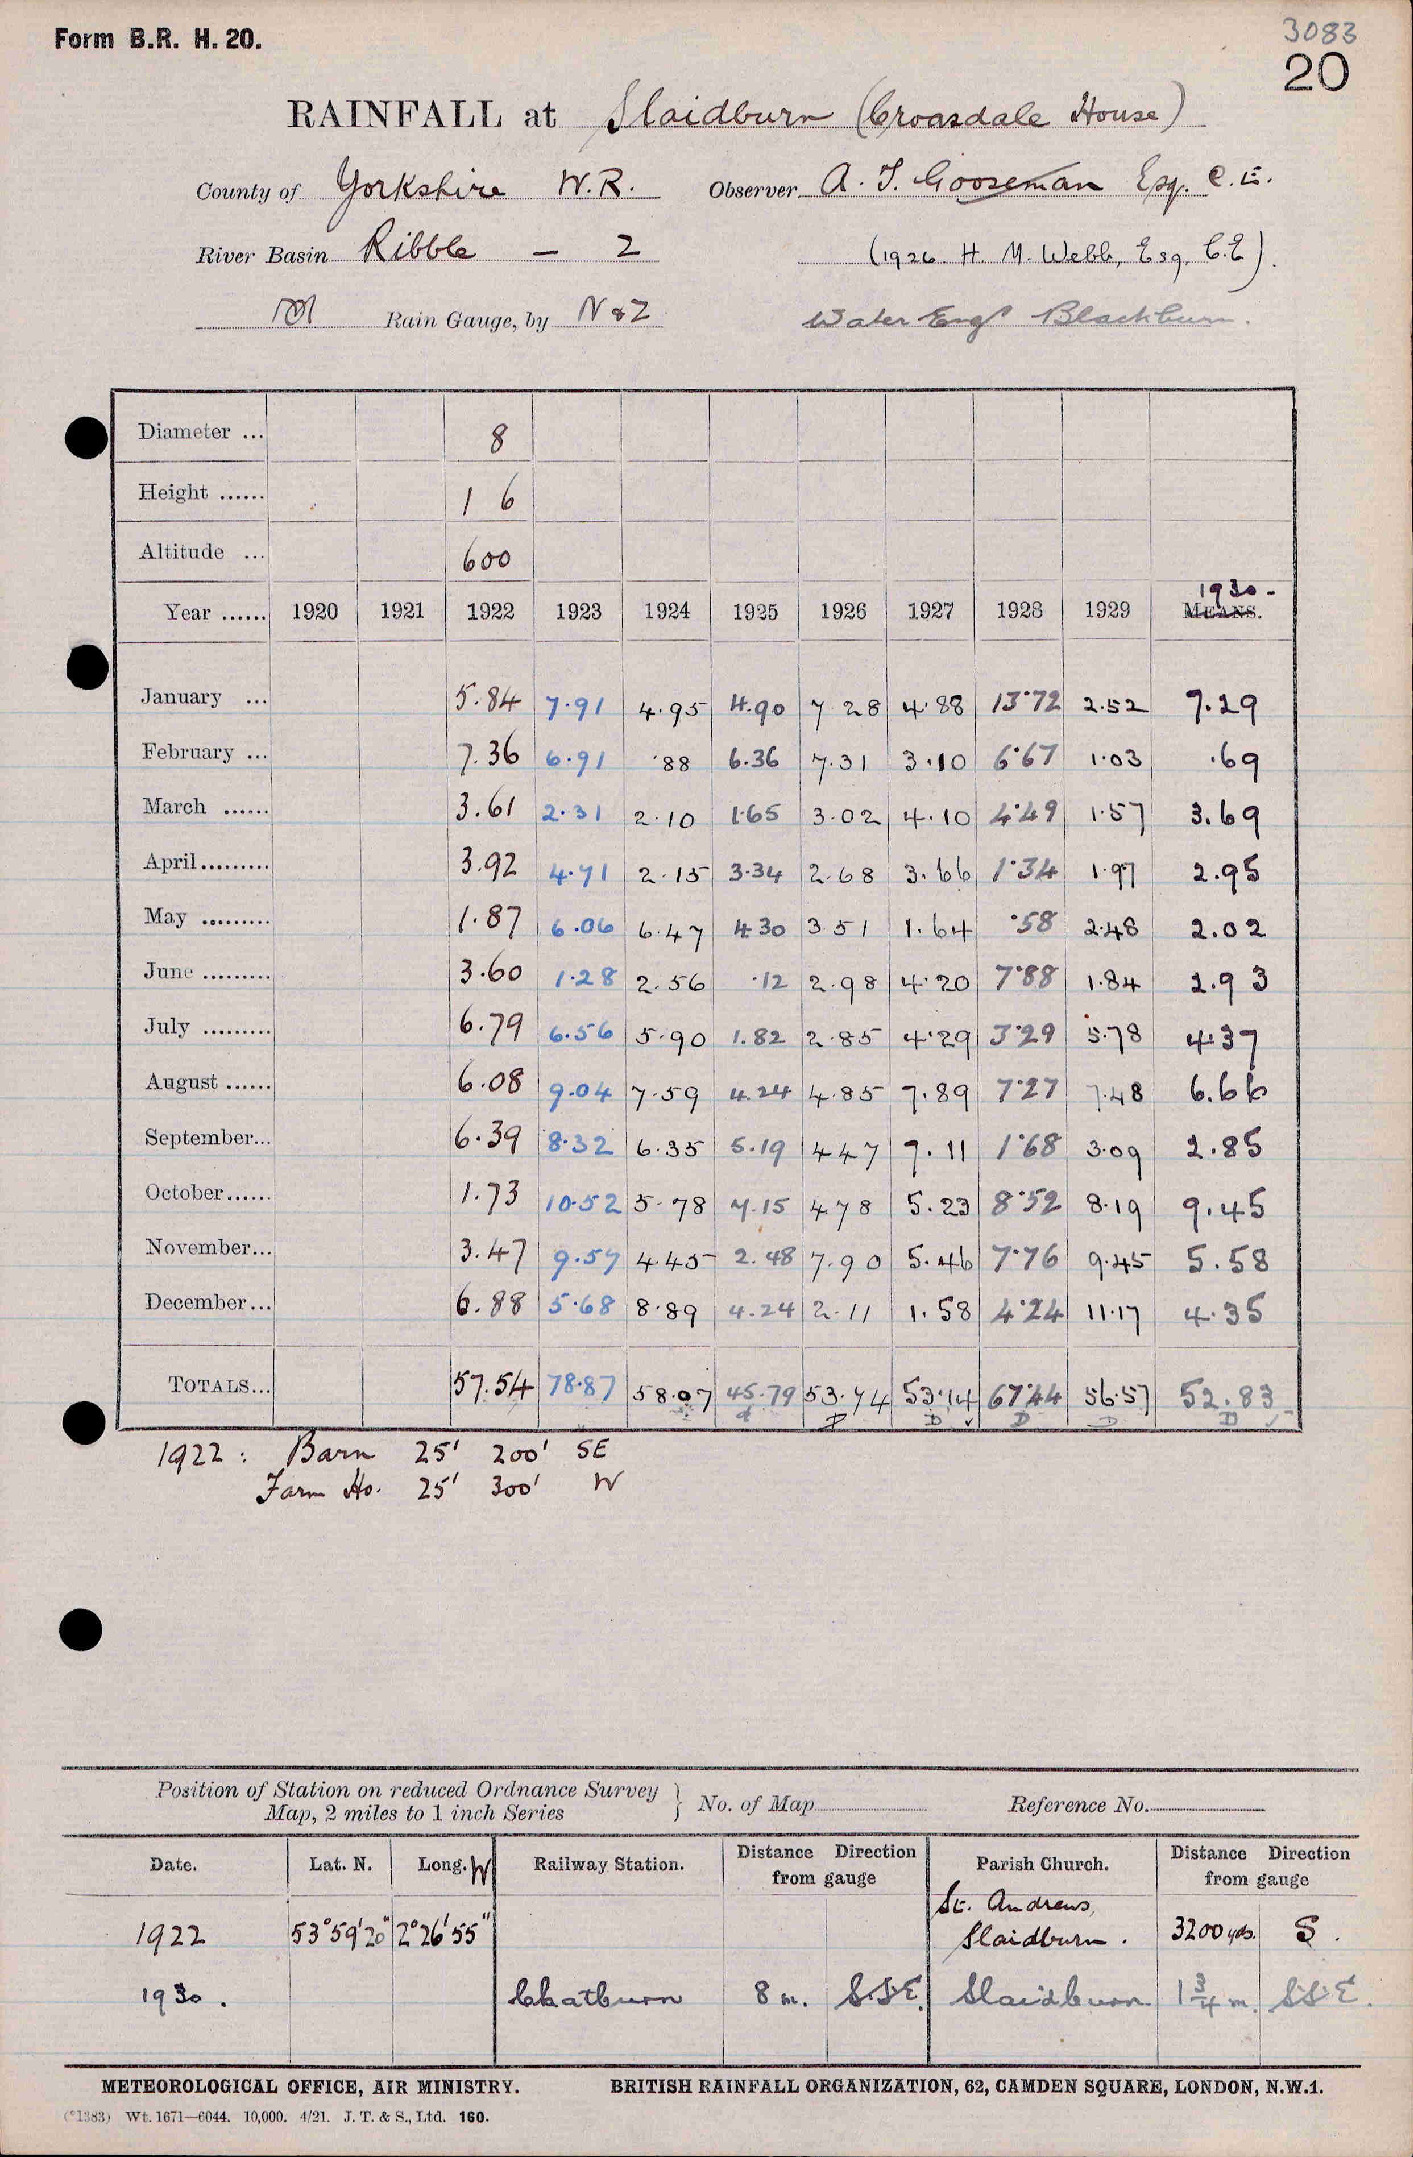 Form B.R. H. 20.
3083
20
RAINFALL at Slaidburn (Croasdale House)
County of Yorkshire W.R. Observer A. T. Gooseman Esq. C.E.
River Basin Ribble — 2 (1926 H. M. Webb, Esq. C.E).
Rain Gauge, by N & Z Water Engr Blackburn.
Diameter ... 8
Height ...... 1 6
Altitude ... 600
1930-
Year ...... 1920 1921 1922 1923 1924 1925 1926 1927 1928 1929 MEANS.
January ... 5.84 7.91 4.95 4.90 7 28 4.88 13.72 2.52 7.29
February ... 7.36 6.91 .88 6.36 7.31 3.10 6.67 1.03 .69
March ...... 3.61 2.31 2.10 1.65 3.02 4.10 4.49 1.57 3.69
April......... 3.92 4.71 2.15 3.34 2.68 3.66 1.34 1.97 2.95
May ......... 1.87 6.06 6.47 4 30 3 51 1.64 .58 2.48 2.02
June ......... 3.60 1.28 2.56 .12 2.98 4.20 7.88 1.84 2.93
July ......... 6.79 6.56 5.90 1.82 2.85 4.29 3.29 5.78 4.37
August ...... 6.08 9.04 7.59 4.24 4.85 7.89 7.27 7.48 6.66
September... 6.39 8.32 6.35 5.19 4 47 7.11 1.68 3.09 2.85
October...... 1.73 10.52 5.78 7.15 4 78 5.23 8.52 8.19 9.45
November... 3.47 9.57 4.45 2.48 7.90 5.46 7.76 9.45 5.58
December... 6.88 5.68 8.89 4.24 2.11 1.58 4.24 11.17 4.35
TOTALS... 57.54 78.87 58.07 45.79 53.74 53.14 67.44 56.57 52.83
D D D D D
1922 : Barn 25' 200' SE
Farm Ho. 25' 300' W
Position of Station on reduced Ordnance Survey
Map, 2 miles to 1 inch Series } No. of Map Reference No.
Date. Lat. N. Long. W Railway Station. Distance Direction from gauge Parish Church. Distance Direction from gauge
1922 53°59'20" 2°26'55" St. Andrews, Slaidburn. 3200 yds. S.
1930. Chatburn 8 m. S.S.E. Slaidburn 1 3/4 m. S.S.E.
METEOROLOGICAL OFFICE, AIR MINISTRY. BRITISH RAINFALL ORGANIZATION, 62, CAMDEN SQUARE, LONDON, N.W.1.
(*1383) Wt. 1671—6044. 10,000. 4/21. J. T. & S., Ltd. 160.